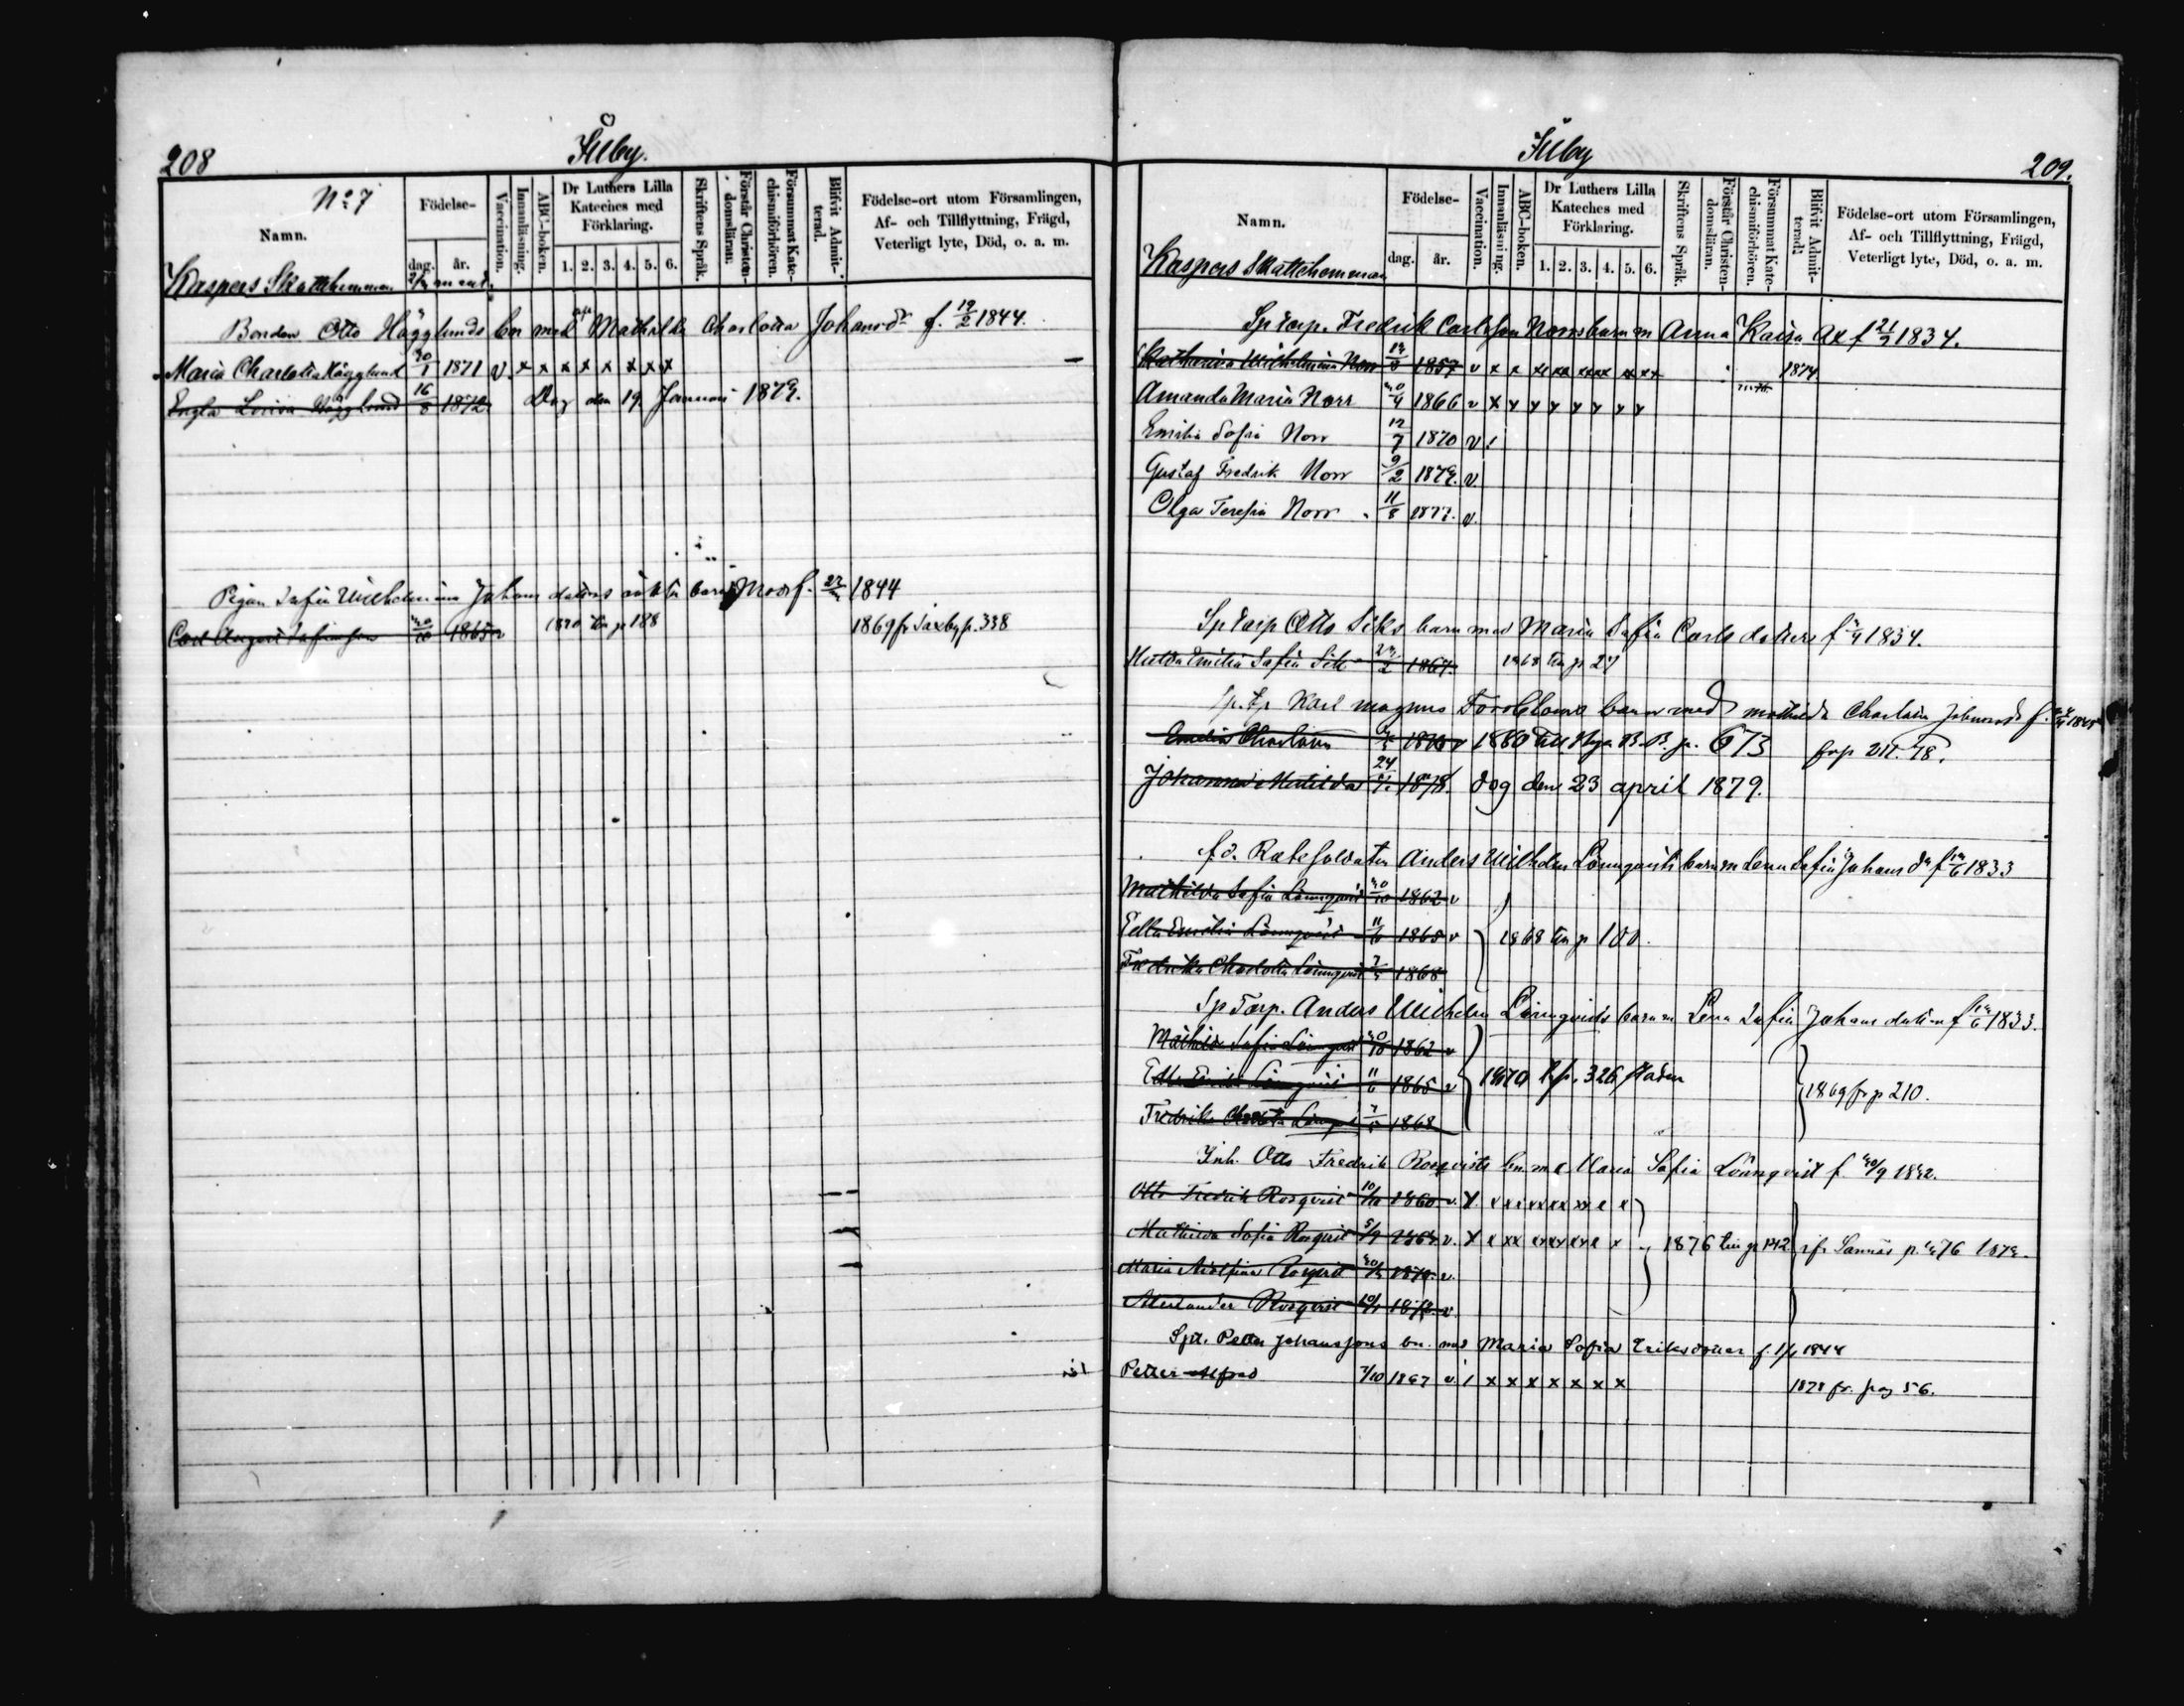 208
Silby.
No 7
Namn.
Födelse-
dag.
år.
Vaccination.
Innanläsning.
ABC-boken.
Dr Luthers Lilla
Kateches med
Förklaring.
1. 2. 3. 4. 5. 6.
Skriftens Språk.
Förstår Christen-
domsläran.
Försummat Kate-
chismiförhören.
Blifvit Admit-
terad.
Födelse-ort utom Församlingen,
Af- och Tillflyttning, Frägd,
Veterligt lyte, Död, o. a. m.
Kaspers Skattehemman
Bonden Otto Hägglunds bn med Mathilda Charlotta Johansdr f. 19/2 1844.
Maria Charlotta Hägglund 1871 v. x x x x x x x x
Engla Lovisa Hägglund 16/8 1872 Dog den 19 Januari 1872.
Pigan Sofia Wilhelmina Johans dotters oäkta barn Mod f. 1844
Carl August 1865 v 1870 till p 188 1869 fr Saxby p. 338
Silby
209.
Namn.
Födelse-
dag.
år.
Vaccination.
Innanläsning.
ABC-boken.
Dr Luthers Lilla
Kateches med
Förklaring.
1. 2. 3. 4. 5. 6.
Skriftens Språk.
Förstår Christen-
domsläran.
Försummat Kate-
chismiförhören.
Blifvit Admit-
terad.
Födelse-ort utom Församlingen,
Af- och Tillflyttning, Frägd,
Veterligt lyte, Död, o. a. m.
Kaspers Skattehemman
Sp torp. Fredrik Carlsson Norrs barn m Anna Kaisa Ax f 21/2 1834.
Katharina Wilhelmina Norr 1857 v x x xx xx xxx xx xx 1874
Amanda Maria Norr 1866 v x y y y y y y y
Emilia Sofia Norr 12/7 1870 v.
Gustaf Fredrik Norr 9/2 1872. v.
Olga Teresia Norr 11/8 1877. v.
Sp torp Otto Siks barn med Maria Sofia Carls dotters f 1834.
Hulda Emilia Sofia Sik 1867. 1868 till p 27
Sp. tp Karl Magnus Forsbloms barn med Mathilda Charlotta
Emelia Charlotta 1880 till Nya B. B. p. 673 fr p 211. 78.
Johanna Matilda 24 1878. dog den 23 april 1879.
f. d. Rotesoldaten Anders Wilhelm Lönnqvists barn m Lena Sofia Johans dr f 1833
Mathilda Sofia Lönnqvist 1862 v
Edla Emilia Lönnqvist 11/6 1865 v 1868 till p 100.
Fredrika Charlotta Lönnqvist 1868
Sp Torp. Anders Wilhelm Lönnqvists barn m Lena Sofia Johans dotter f 1833.
Mathilda Sofia Lönnqvist 1862 v
Edla Emilia Lönnqvist 11/6 1865 v 1870 t. p. 326 staden 1869 fr p 210.
Fredrika Charlotta 1868
Inh. Otto Fredrik Rosqvists bn med Maria Sofia Lönnqvist f
Otto Fredrik Rosqvist 1860 v.
Mathilda Sofia Rosqvist v. 1876 till p 142
Maria Adolfina Rosqvist v.
Alexander Rosqvist v
Spt. Petter Johanssons bn. med Maria Sofia Eriksdotter f. 1844
Petter Alfred 7/10 1867 v. i x x x x x x x 1878 fr. pag 56.